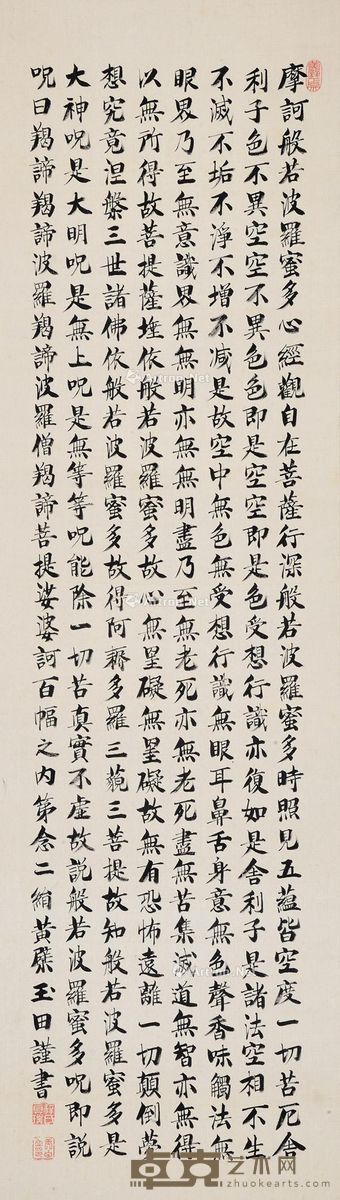 摩訶般若波羅蜜多心經觀自在菩薩行深般若波羅蜜多時照見五蘊皆空度一切苦厄舍
利子色不異空空不異色色即是空空即是色受想行識亦復如是舍利子是諸法空相不生
不滅不垢不淨不增不減是故空中無色無受想行識無眼耳鼻舌身意無色聲香味觸法無
眼界乃至無意識界無無明亦無無明盡乃至無老死亦無老死盡無苦集滅道無智亦無得
以無所得故菩提薩埵依般若波羅蜜多故心無罣礙無罣礙故無有恐怖遠離一切顛倒夢
想究竟涅槃三世諸佛依般若波羅蜜多故得阿耨多羅三藐三菩提故知般若波羅蜜多是
大神呪是大明呪是無上呪是無等等呪能除一切苦真實不虛故説般若波羅蜜多呪即説
呪曰羯諦羯諦波羅羯諦波羅僧羯諦菩提娑婆訶百幅之内第念二綃黃檗玉田謹書
卓克艺术网
www.zhuokearts.com